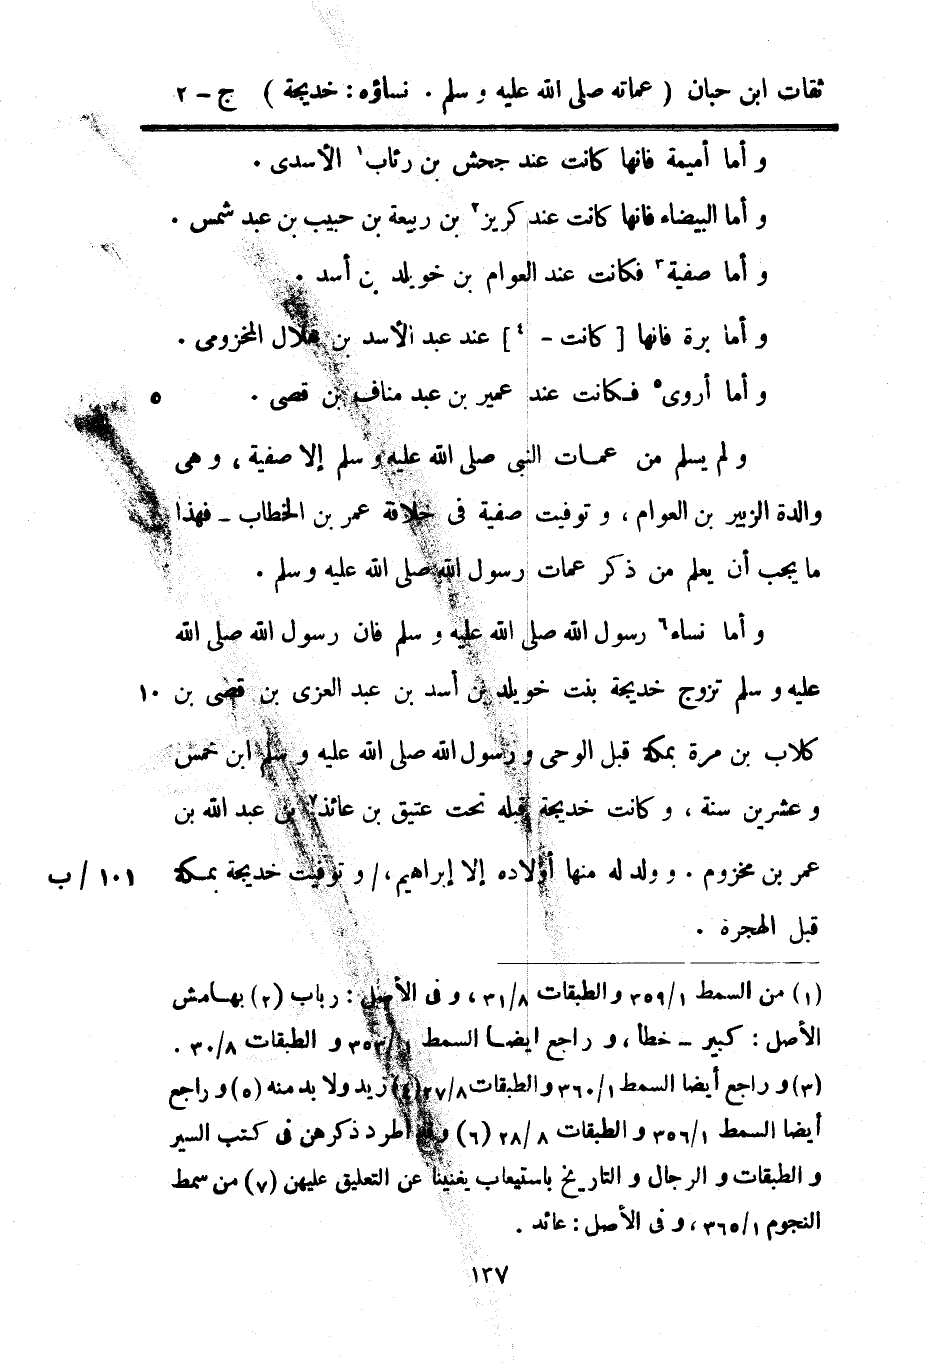 ثقات ابن حبان ( عماته صلى الله عليه و سلم . نساؤه : خديجة ) ج - ٢
و أما أميمة فانها كانت عند جحش بن رئاب١ الأسدى .
و أما البيضاء فانها كانت عند كريز٢ بن ربيعة بن حبيب بن عبد شمس .
و أما صفية٣ فكانت عند العوام بن خويلد بن أسد .
و أما برة فانها [ كانت - ٤ ] عند عبد الأسد بن هلال المخزومى .
و أما أروى٥ فكانت عند عمير بن عبد مناف بن قصى . ٥
و لم يسلم من عمات النبى صلى الله عليه و سلم إلا صفية ، و هى
والدة الزبير بن العوام ، و توفيت صفية فى خلافة عمر بن الخطاب - فهذا
ما يجب أن يعلم من ذكر عمات رسول الله صلى الله عليه و سلم .
و أما نساء٦ رسول الله صلى الله عليه و سلم فان رسول الله صلى الله
عليه و سلم تزوج خديجة بنت خويلد بن أسد بن عبد العزى بن قصى بن ١٠
كلاب بن مرة بمكة قبل الوحى و رسول الله صلى الله عليه و سلم ابن خمس
و عشرين سنة ، و كانت خديجة قبله تحت عتيق بن عائذ٧ بن عبد الله بن
عمر بن مخزوم . و ولد له منها أولاده إلا إبراهيم ، / و توفيت خديجة بمكة ١٠١ / ب
قبل الهجرة .
(١) من السمط ١/٣٥٩ و الطبقات ٨/٣١ ، و فى الأصل : رباب (٢) بهامش
الأصل : كبير - خطأ ، و راجع ايضا السمط ١/٣٥٣ و الطبقات ٨/٣٠ .
(٣) و راجع أيضا السمط ١/٣٦٠ و الطبقات ٨/٢٧ (٤) زيد ولا بد منه (٥) و راجع
أيضا السمط ١/٣٥٦ و الطبقات ٨/٢٨ (٦) وقد اطرد ذكرهن فى كتب السير
و الطبقات و الرجال و التاريخ باستيعاب يغنينا عن التعليق عليهن (٧) من سمط
النجوم ١/٣٦٥ ، و فى الأصل : عائد .
١٣٧